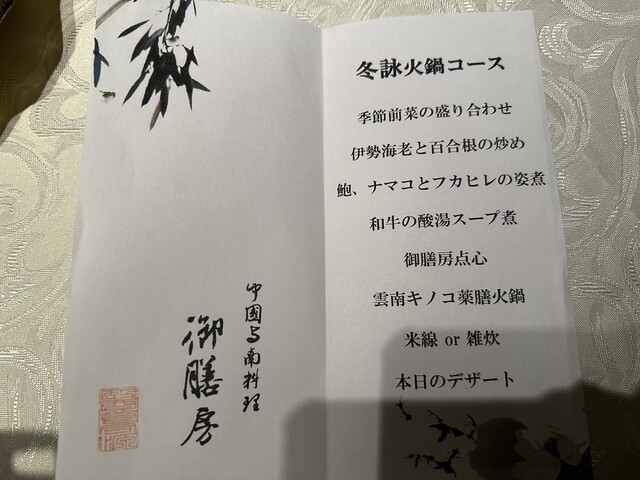 冬詠火鍋コース
季節前菜の盛り合わせ
伊勢海老と百合根の炒め
鮑、ナマコとフカヒレの姿煮
和牛の酸湯スープ煮
御膳房点心
雲南キノコ薬膳火鍋
米線 or 雑炊
本日のデザート
御膳房